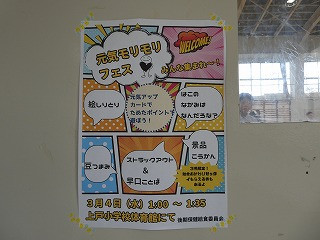 元気モリモリ
フェス
WELCOME!
みんな集まれ〜！
絵しりとり
元気アップ
カードで
ためたポイントで
遊ぼう！
はこの
なかみは
なんだろな？
豆つまみ
ストラックアウト
&
早口ことば
景品
こうかん
3月4日（水）1:00 〜 1:35
上戸小学校体育館にて
後期保健給食委員会